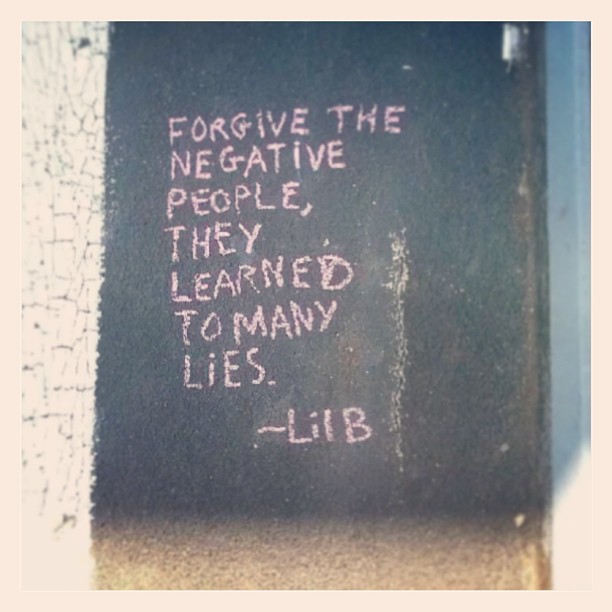 FORGiVE THE
NEGATiVE
PEOPLE,
THEY
LEARNED
TO MANY
LiES.
~LilB